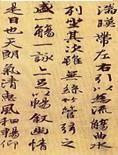 湍暎帶左右引以為流觴曲水
列坐其次雖無絲竹管弦之
盛一觴一詠亦足以暢敘幽情
是日也天朗氣清惠風和暢仰